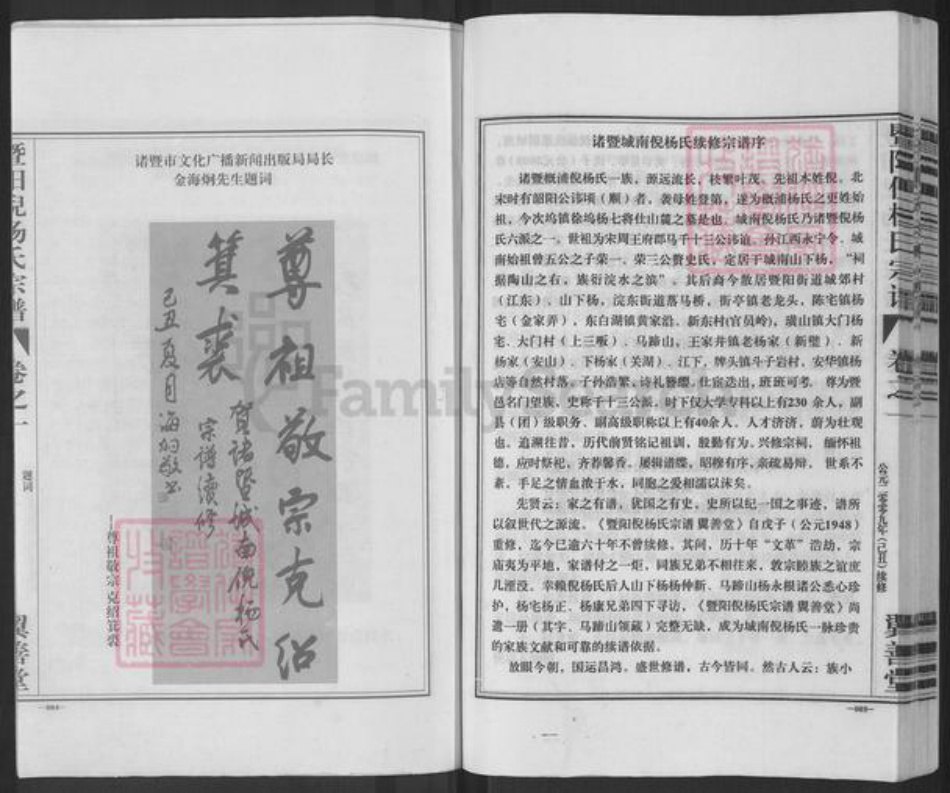 诸暨市文化广播新闻出版局局长
金海炯先生题词
尊祖敬宗克绍
箕裘
贺诸暨城南倪杨氏
宗谱续修
己丑夏月海炯敬书
——尊祖敬宗 克绍箕裘
暨阳倪杨氏宗谱
卷之一
题词
翼善堂
诸暨城南倪杨氏续修宗谱序
诸暨概浦倪杨氏一族，源远流长，枝繁叶茂。先祖本姓倪。北
宋时有韶阳公讳顼（顺）者，袭母姓登第，遂为概浦杨氏之更姓始
祖，今次坞镇徐坞杨七将仕山麓之墓是也。城南倪杨氏乃诸暨倪杨
氏六派之一。世祖为宋周王府郡马千十三公讳谊。孙江西永宁令、城
南始祖曾五公之子荣一、荣三公赘史氏，定居于城南山下杨，“祠
据陶山之右，族衍浣水之滨”。其后裔今散居暨阳街道城郊村
（江东）、山下杨，浣东街道落马桥，街亭镇老龙头，陈宅镇杨
宅（金家弄），东白湖镇黄家沿、新东村(官员岭)，璜山镇大门杨
宅、大门村（上三畈）、马蹄山，王家井镇老杨家（新壁）、新
杨家（安山）、下杨家（关湖）、江下，牌头镇斗子岩村，安华镇杨
店等自然村落。子孙浩繁，诗礼簪缨。仕宦迭出，班班可考。尊为暨
邑名门望族，史称千十三公派。时下仅大学专科以上有230 余人，副
县（团）级职务、副高级职称以上有40余人。人才济济，蔚为壮观
也。追溯往昔，历代前贤铭记祖训，殷勤有为。兴修宗祠，缅怀祖
德，应时祭祀，齐荐馨香。屡辑谱牒，昭穆有序，亲疏易辩，世系不
紊，手足之情血浓于水，同胞之爱相濡以沫矣。
先贤云：家之有谱，犹国之有史，史所以纪一国之事迹，谱所
以叙世代之源流。《暨阳倪杨氏宗谱 翼善堂》自戊子（公元1948）
重修，迄今已逾六十年不曾续修。其间，历十年“文革”浩劫，宗
庙夷为平地，家谱付之一炬，同族兄弟不相往来，敦宗睦族之谊庶
几湮没。幸赖倪杨氏后人山下杨杨仲新、马蹄山杨永根诸公悉心珍
护，杨宅杨正、杨康兄弟四下寻访，《暨阳倪杨氏宗谱 翼善堂》尚
遗一册（其字、马蹄山领藏）完整无缺，成为城南倪杨氏一脉珍贵
的家族文献和可靠的续谱依据。
放眼今朝，国运昌鸿。盛世修谱，古今皆同。然古人云：族小
公元二零零九年（己丑）续修
翼善堂
FamilySearch